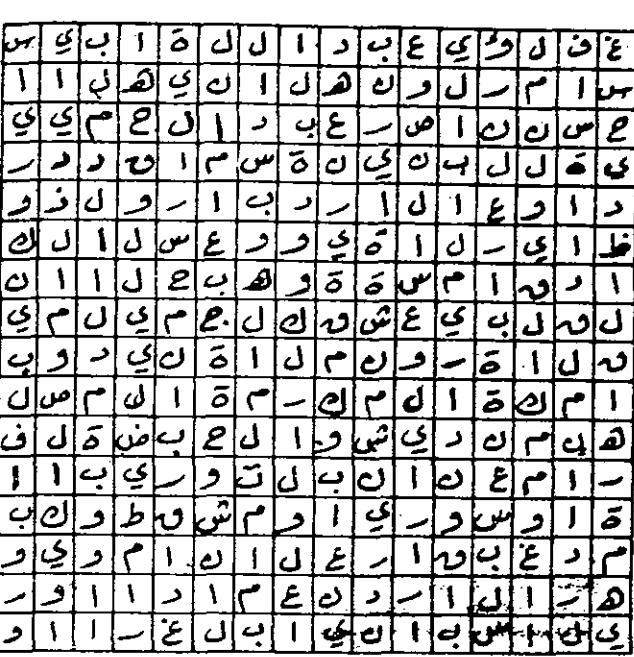 غ ف ل ؤ ي ع ب د ا ل ل ة ا ب ي س
س ا م ر ل و ن ه ل ا ن ي ه ل ا ا
ح س ن ن ا ص ر ع ب د ا ل ح م ي ي
ي ة ل ل ب ن ي ن ة س م ا ق د د ر
د ا و ع ا ل ا ر د ب ا ر و ل ذ و
ظ ا ي ر ل ا ة ي و و ع س ل ا ل ك
ا د ق ا م س ة ة و ه ب ح ل ا ا ن
ل ق ل ب ي ع ش ق ك ل ج م ي ل م ي
ق ل ا ة ر و ن م ل ا ة ن ي د و ب
ا م ك ة ا ل م ك ر م ة ا ل م ص ل
ه ي م ن د ي ش و ا ل ح ب ض ة ل ف
ر ا م ع ن ا ن ب ل ت و ر ي ب ا ا
ة ا و س و ر ي ا و م ش ق ط و ك ب
م د غ ب ق ا ر ع ل ا ن ا م و ي و
ه ر ا ل ا ر د ن ع م ا د ا ا و ر
ي ل ا س ب ا ن ي ا ب ل غ ر ا ا و